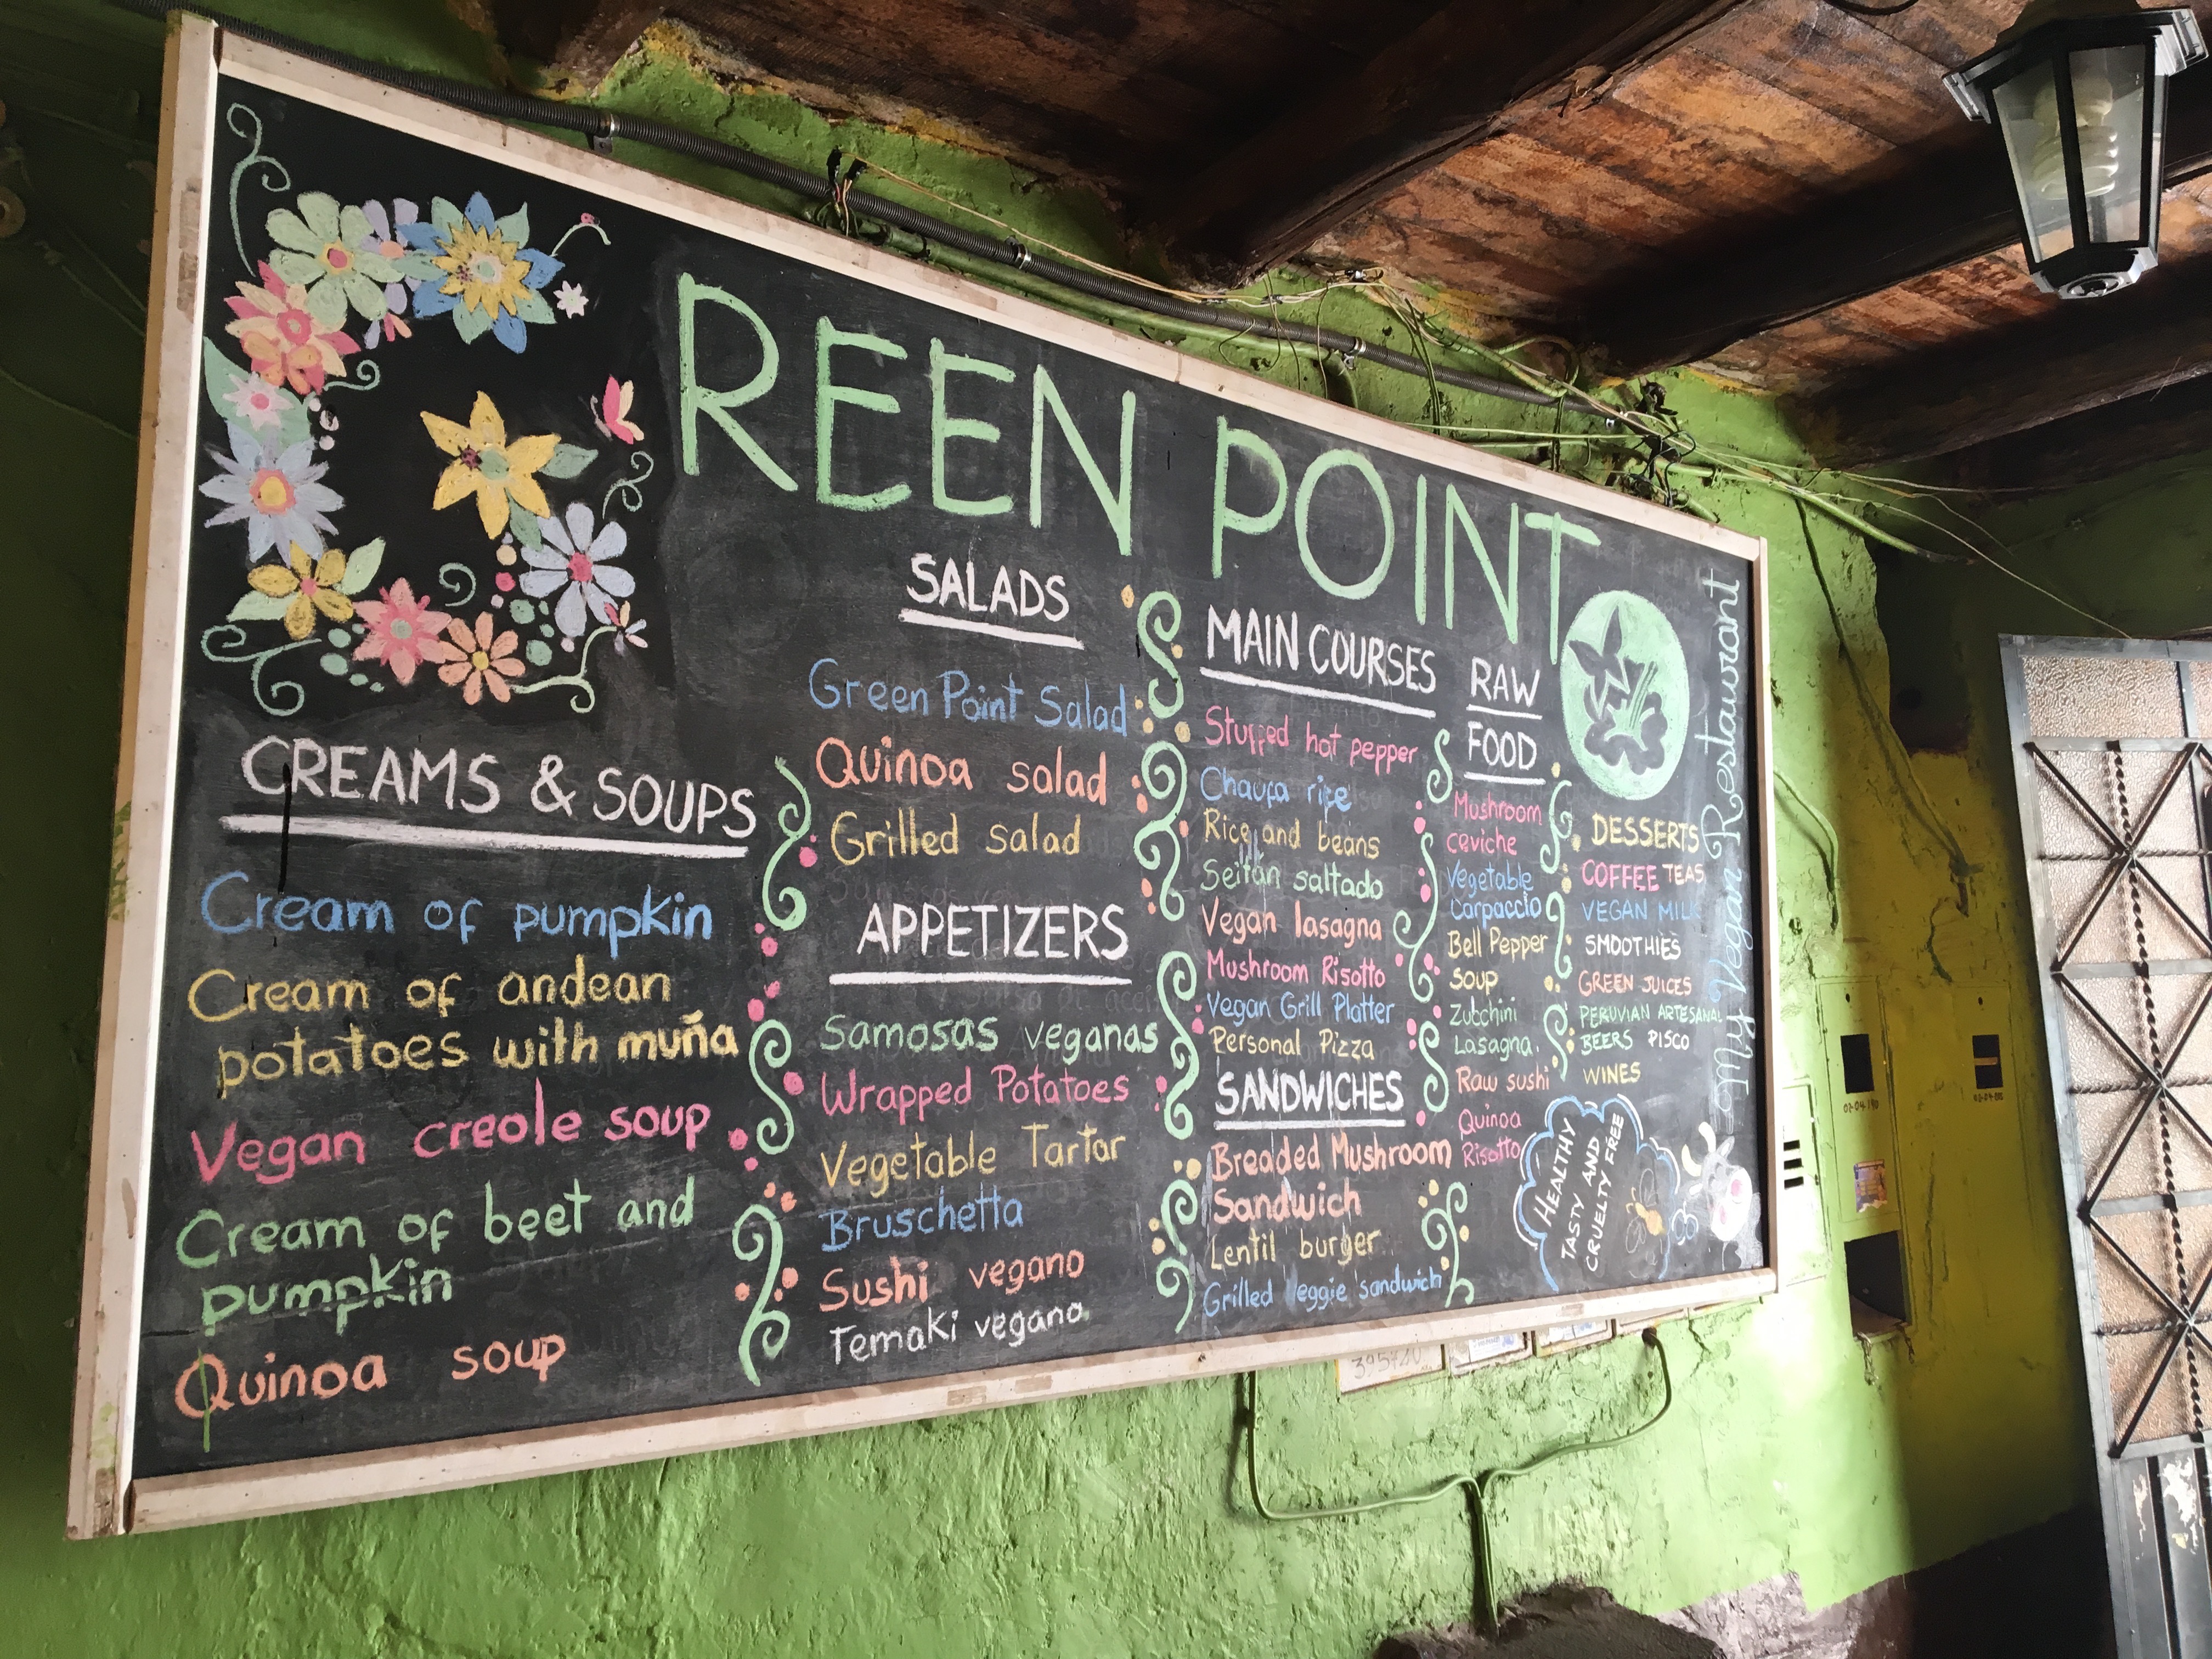 GREEN POINT
CREAMS & SOUPS
Cream of pumpkin
Cream of andean
potatoes with muña
Vegan creole soup
Cream of beet and
pumpkin
Quinoa soup
SALADS
Green Point Salad
Quinoa salad
Grilled salad
APPETIZERS
Samosas veganas
Wrapped Potatoes
Vegetable Tartar
Bruschetta
Sushi vegano
Temaki vegano
MAIN COURSES
Stuffed hot pepper
Chaufa rice
Rice and beans
Seitán saltado
Vegan lasagna
Mushroom Risotto
Vegan Grill Platter
Personal Pizza
SANDWICHES
Breaded Mushroom
Sandwich
Lentil burger
Grilled veggie sandwich
RAW
FOOD
Mushroom
ceviche
Vegetable
Carpaccio
Bell Pepper
Soup
Zucchini
Lasagna.
Raw sushi
Quinoa
Risotto
DESSERTS
COFFEE TEAS
VEGAN MILK
SMOOTHIES
GREEN JUICES
PERUVIAN ARTESANAL
BEERS PISCO
WINES
HEALTHY
TASTY AND
CRUELTY FREE
My Vegan Restaurant